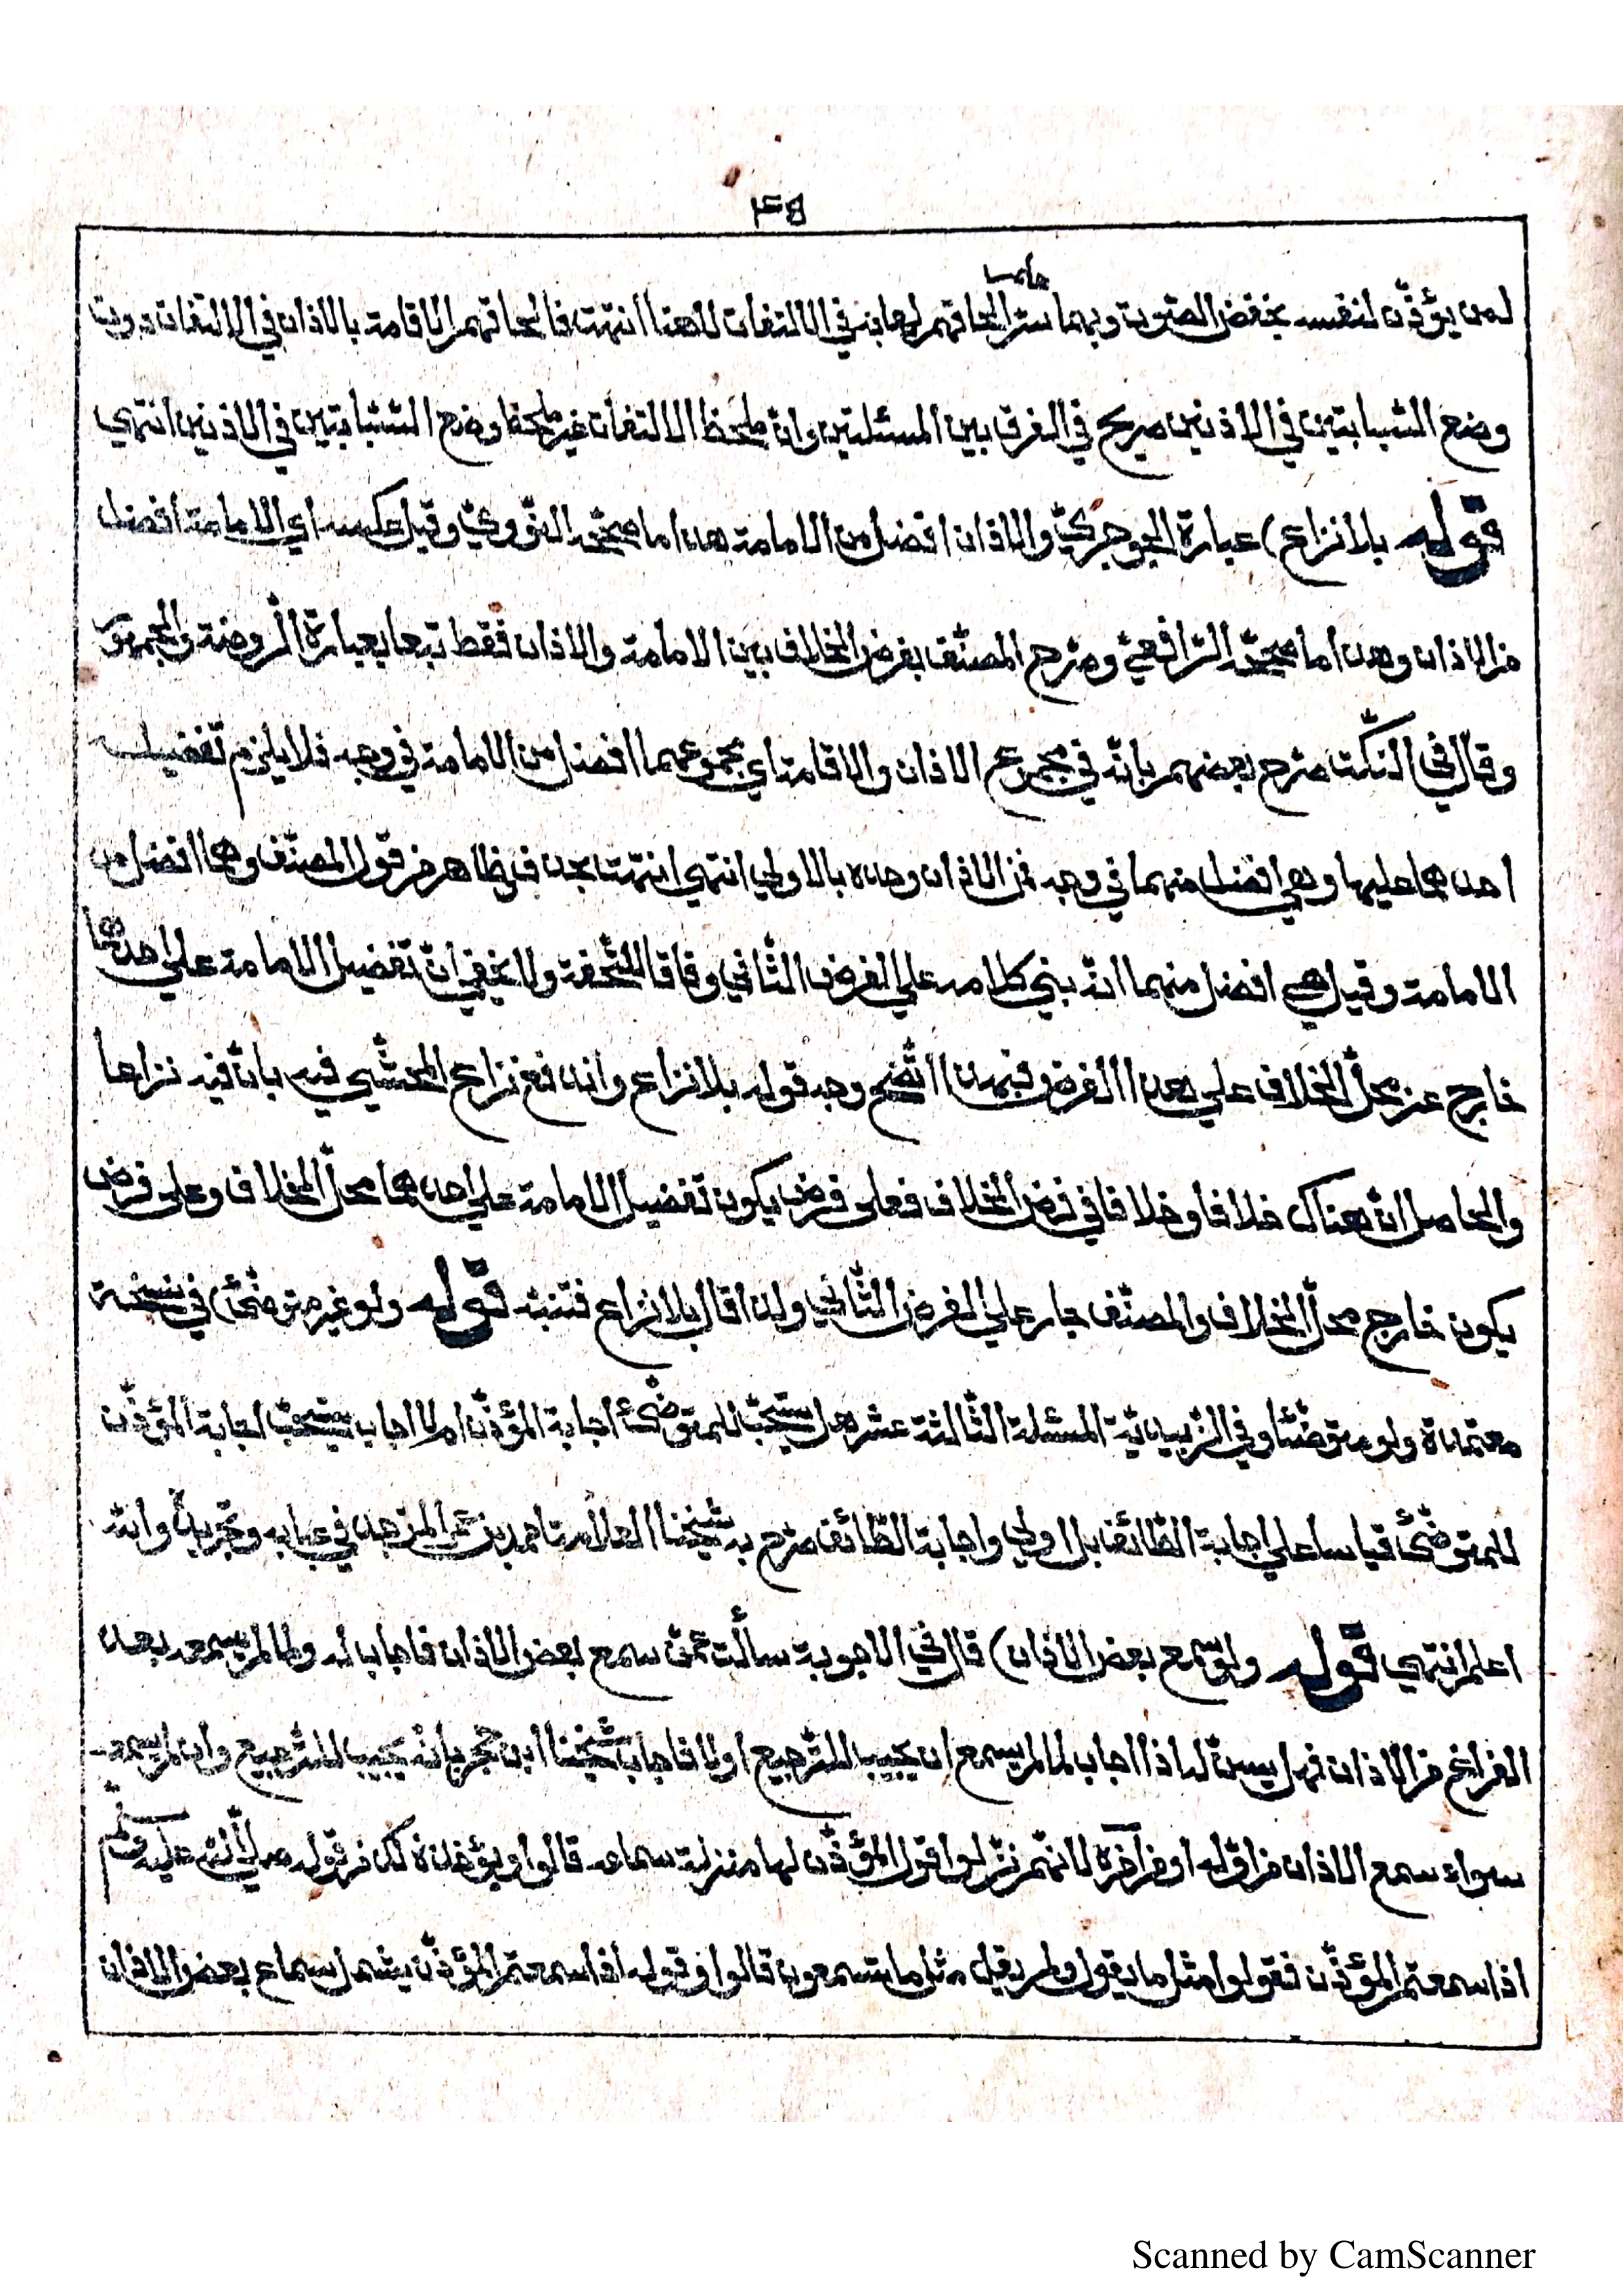 ٣٤٥
لمن يؤذّن لنفسه بخفض الصّوت وبهما الحاقهم لها به في الالتفات لا هنا انتهت فالحاقهم الاقامة بالاذان في الالتفات دون
وضع السّبابتين في الاذنين صريح في الفرق بين المسئلتين وانّ ملحظ الالتفات غير ملحظ وضع السّبّابتين في الاذنين انتهي
قوله بلا نزاع) عبارة الجوجريّ والاذان افضل من الامامة هذا ما صحّحه النّوويّ وقيل عكسه اي الامامة افضل
من الاذان وهذا ما صحّحه الرّافعيّ وصرّح المصنّف بفرض الخلاف بين الامامة والاذان فقط تبعا لعبارة الرّوضة والجمهور
وقال في النّكت صرّح بعضهم بانّه في مجموع الاذان والاقامة اي مجموعهما افضل من الامامة في وجه فلا يلزم تفضيل
احدهما عليها وهي افضل منهما في وجه فمن الاذان وحده بالاولي انتهي انتهت بحذف فظاهر من قول المصنّف وهما افضل من
الامامة وقيل هي افضل منهما انّه بني كلامه علي الفرض الثّاني وفاقا للتّحفة ولا يخفي انّ تفضيل الامامة علي احدهما
خارج عن محلّ الخلاف علي هذا الفرض وبهذا اتّضح وجه قوله بلا نزاع واندفع نزاع المحشّي فيه بانّ فيه نزاعا
والحاصل انّ هناك خلافا وخلافا في فرض الخلاف فعلي فرض يكون تفضيل الامامة علي احدهما محلّ الخلاف وعلي فرض
يكون خارج محلّ الخلاف والمصنّف جار علي الفرض الثّاني ولذا قال بلا نزاع فتنبّه قوله ولو غير متوضّئ) في نسخة
معتمدة ولو متوضّئا وفي المسئلة الثّالثة عشر هل يستحبّ للمتوضّئ اجابة المؤذّن ام لا اجاب يستحبّ اجابة المؤذّن
للمتوضّئ قياسا علي اجابة الطّائف بل اولي واجابة الطّائف صرّح به شيخنا العلّامة احمد بن عمر المزجد في عبابه وتجريده واللّه
اعلم انتهي قوله ولو سمع بعض الاذان) قال في الاجوبة سألت عمّن سمع بعض الاذان فاجابه ولما لم يسمعه بعد
الفراغ من الاذان فهل يسنّ له اذا اجاب لما لم يسمع ان يجيب للتّرجيع اولا فاجاب شيخنا ابن حجر بانّه يجيب للتّرجيع وان لم يسمعه
سواء سمع الاذان من اوّله او من آخره لانّهم نزّلوا قول المؤذّن لها منزلة سماعه قالوا ويؤخذ ذلك من قوله صلّي اللّه عليه وسلّم
اذا سمعتم المؤذّن فقولوا مثل ما يقول ولم يقل مثل ما تسمعون قالوا وقوله اذا سمعتم المؤذّن يشمل سماع بعض الاذان
Scanned by CamScanner